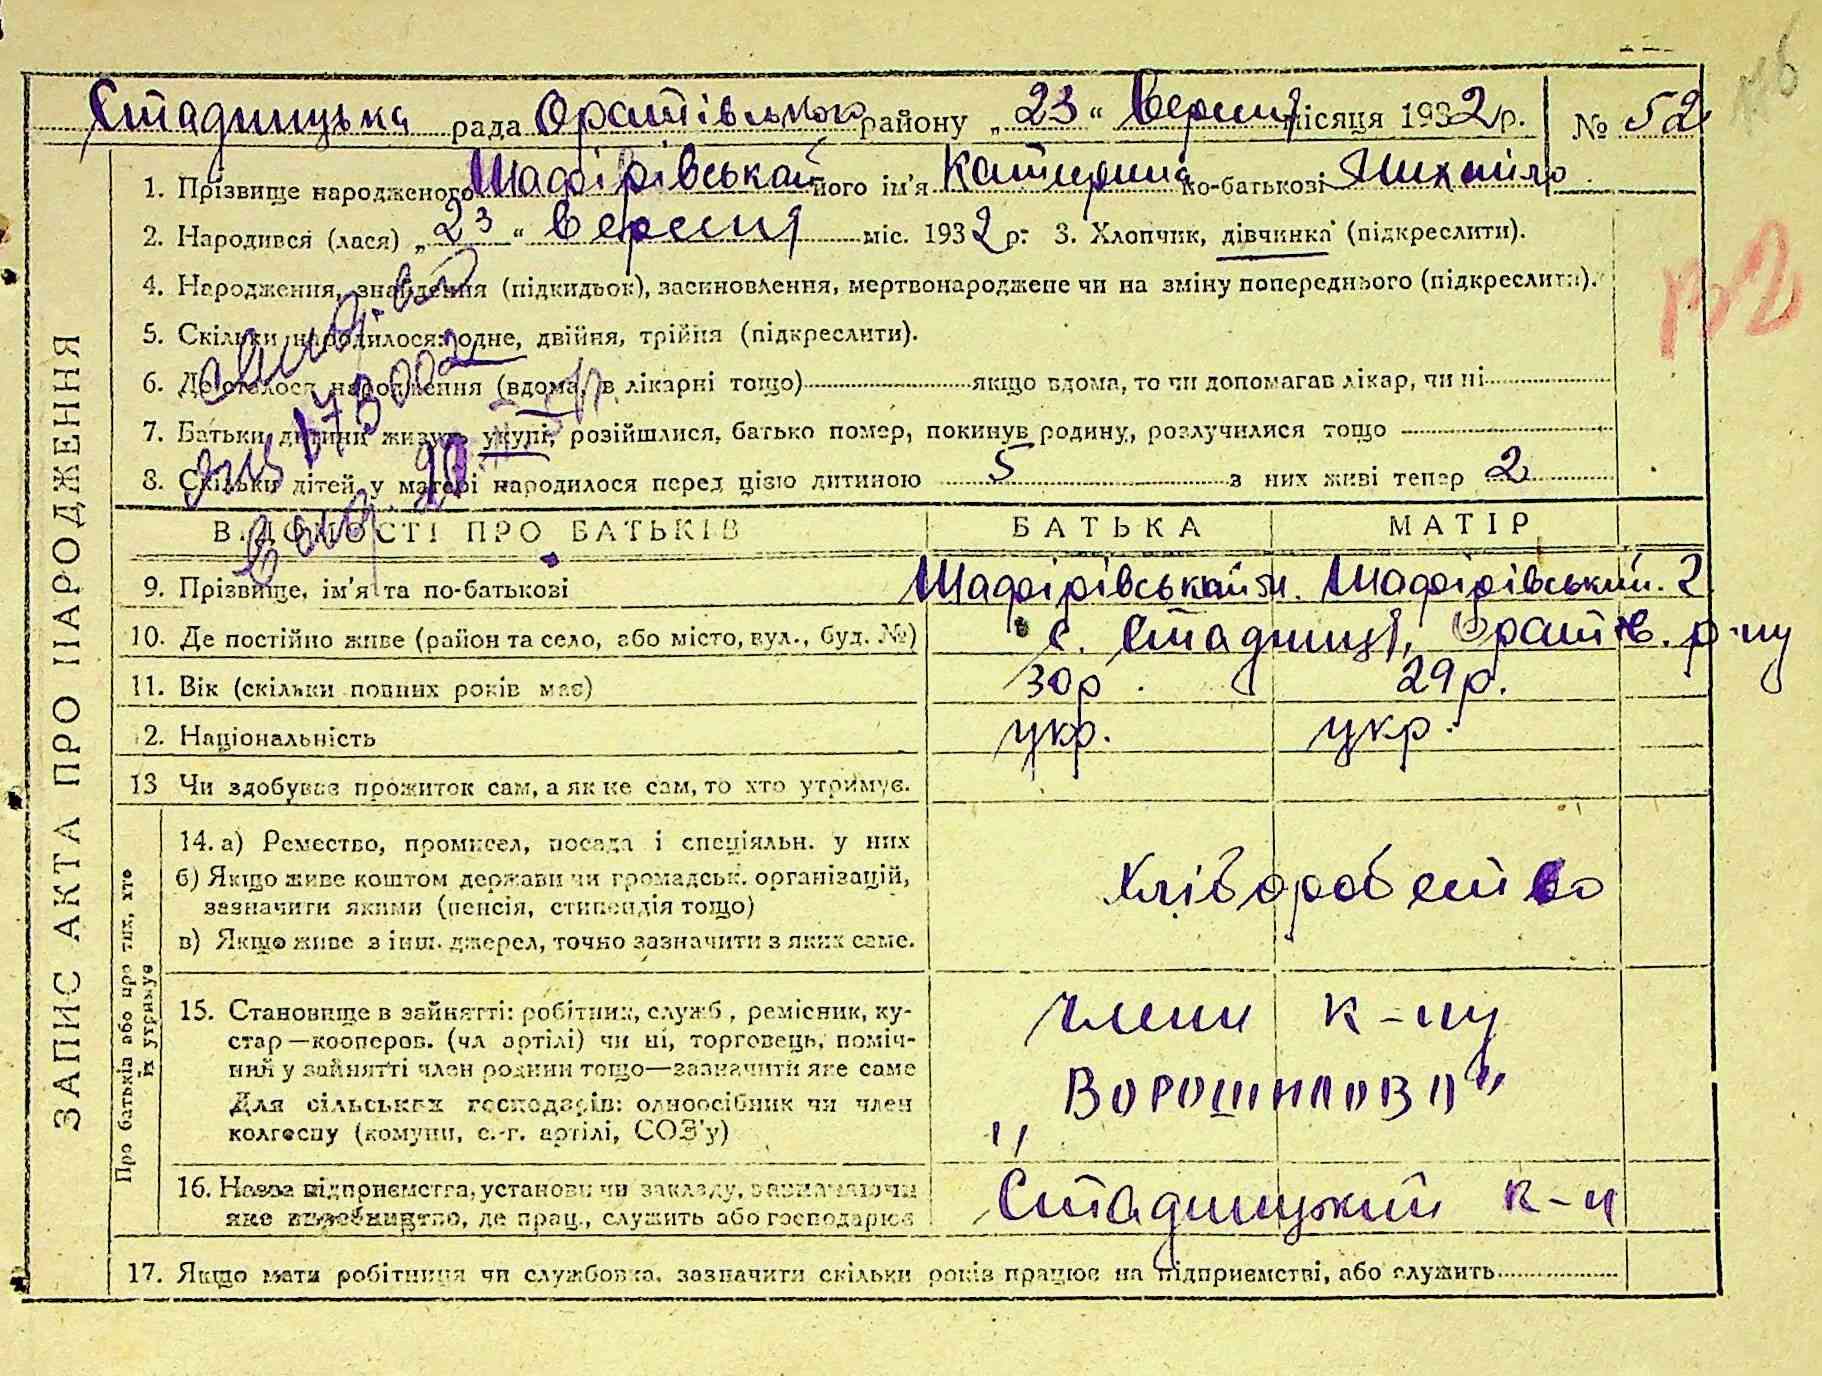 Стадницька рада Оратівського району „23“ Вересня місяця 1932 р. № 52
1. Прізвище народженого Шафірівський його ім'я Катерина по-батькові Михайло
2. Народився (лася) „23“ Вересня міс. 1932 р. 3. Хлопчик, дівчинка (підкреслити).
4. Народження, знайдення (підкидьок), засиновлення, мертвонароджене чи на зміну попереднього (підкреслити).
5. Скільки народилося: одне, двійня, трійня (підкреслити).
6. Де сталося народження (вдома, в лікарні тощо) якщо вдома, то чи допомагав лікар, чи ні
7. Батьки дитини живуть укупі, розійшлися, батько помер, покинув родину, розлучилися тощо
8. Скільки дітей у матері народилося перед цією дитиною 5 з них живі тепер 2
ВІДОМОСТІ ПРО БАТЬКІВ БАТЬКА МАТІР
9. Прізвище, ім'я та по-батькові Шафірівський М. Шафірівський.
10. Де постійно живе (район та село, або місто, вул., буд. №) с. Стадниця, Оратів. р-ну
11. Вік (скільки повних років має) 30 р. 29 р.
12. Національність укр. укр.
13 Чи здобуває прожиток сам, а як не сам, то хто утримує.
14. а) Ремество, промисел, посада і спеціяльн. у них
б) Якщо живе коштом держави чи громадськ. організацій,
зазначити якими (пенсія, стипендія тощо)
Хліборобство
в) Якщо живе з інш. джерел, точно зазначити з яких саме.
15. Становище в зайнятті: робітник, служб., ремісник, ку-
стар—кооперов. (чл артілі) чи ні, торговець, поміч-
ний у зайнятті член родини тощо—зазначити яке саме
Для сільських господарів: одноосібник чи член
колгоспу (комуни, с.-г. артілі, СОЗ'у)
Члени к-пу
„Ворошилова"
16. Назва підприємства, установи чи закладу, зазначаючи
яке виробництво, де прац., служить або господарює
Стадницький к-п
17. Якщо мати робітниця чи службовка, зазначити скільки років працює на підприємстві, або служить
ЗАПИС АКТА ПРО НАРОДЖЕННЯ
Про батьків або про тих, хто
їх утримує